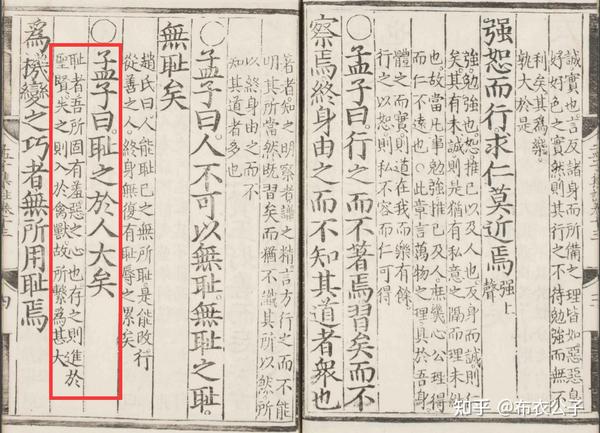 誠實也言反諸身而所備之理皆如惡惡臭
好好色之實然則其行之不待勉強而無不
利矣其為樂
孰大於是
强恕而行求仁莫近焉
强上
聲
強勉強也恕推己以及人也反身而誠則仁
矣其有未誠則是猶有私意之隔而理未純
也故當凡事勉強推己及人庶幾心公理得
而仁不遠也○此章言萬物之理具於吾身
體之而實則道在我而樂有餘
行之以恕則私不容而仁可得
○孟子曰行之而不著焉習矣而不
察焉終身由之而不知其道者衆也
著者知之明察者識之精言方行之而不能
明其所當然既習矣而猶不識其所以然所
以終身由之而不
知其道者多也
○孟子曰人不可以無恥無恥之恥
無恥矣
趙氏曰人能恥己之無所恥是能改行
從善之人終身無復有恥辱之累矣
○孟子曰恥之於人大矣
恥者吾所固有羞惡之心也存之則進於
聖賢失之則入於禽獸故所繫為甚大
為機變之巧者無所用恥焉
四
知乎 @布衣公子